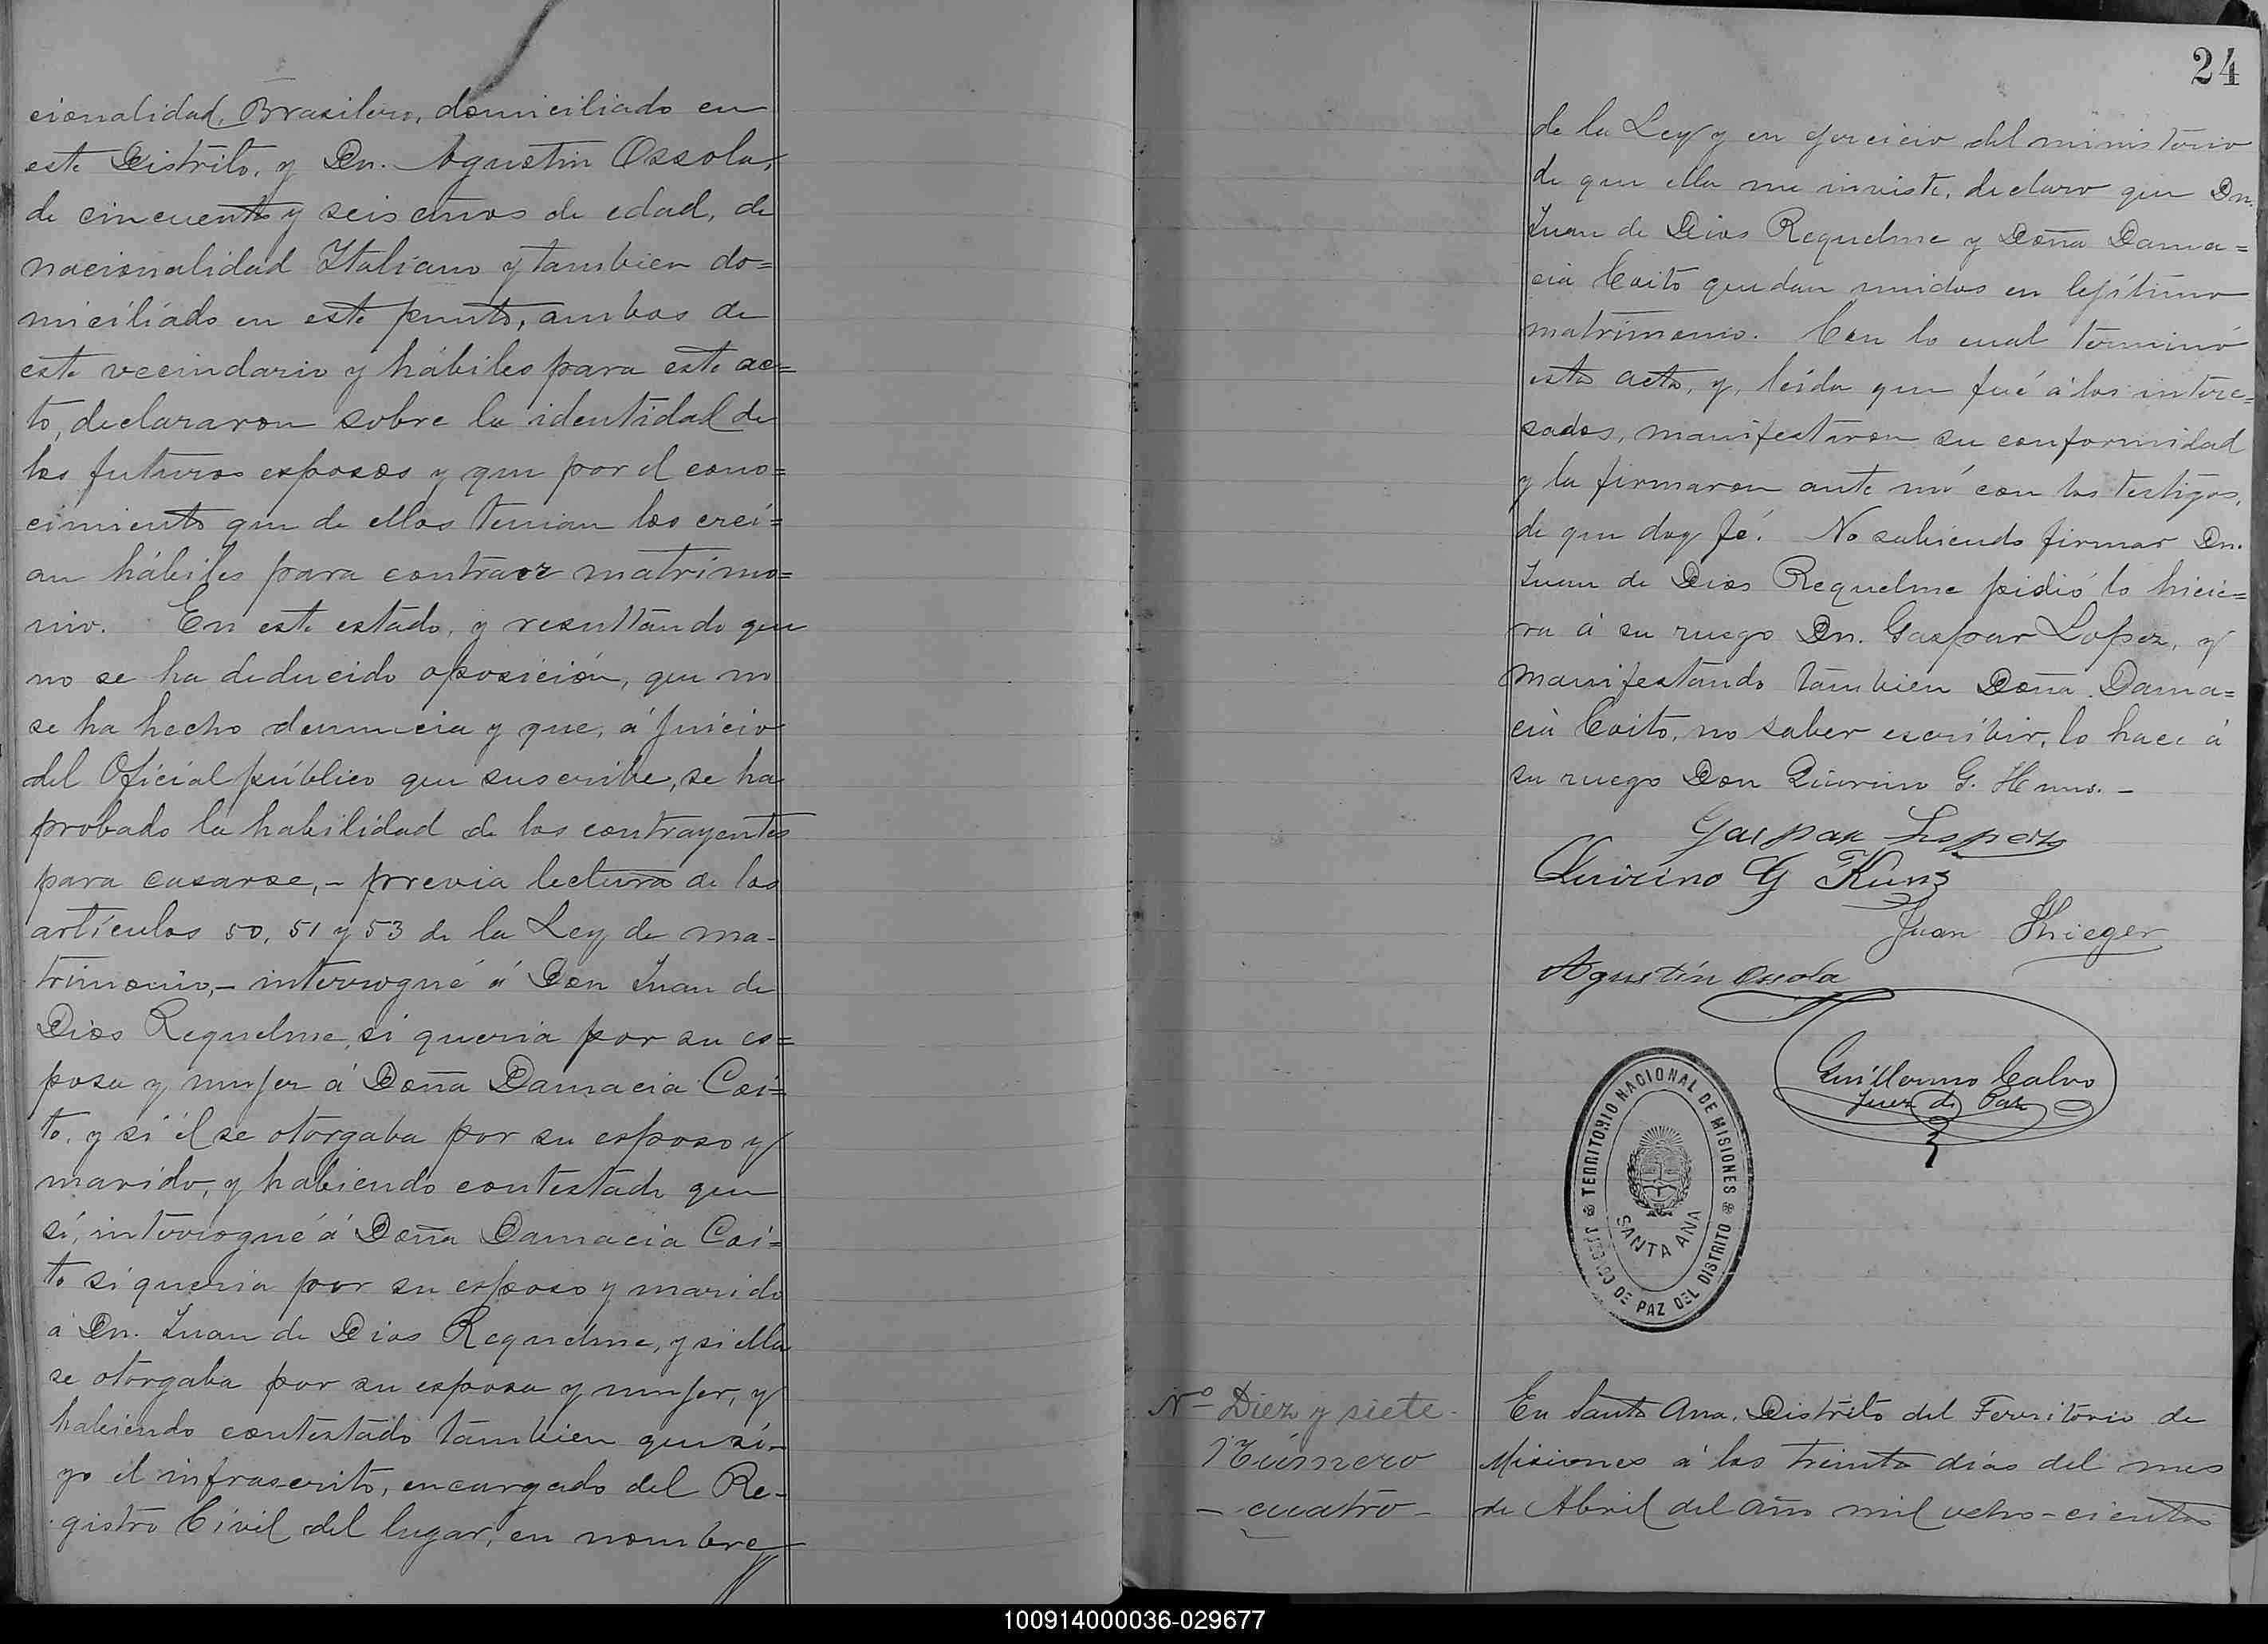 cionalidad, Brasilero, domiciliado en
este Distrito, y Dn. Agustin Ossola,
de cincuenta y seis años de edad, de
nacionalidad Italiano y tambien do=
miciliado en este punto, ambos de
este vecindario y hábiles para este ac=
to, declararon sobre la identidad de
los futuros esposos y que por el cono=
cimiento que de ellos tenian los creí=
an hábiles para contraer matrimo=
nio. En este estado, y resultando que
no se ha deducido oposición, que no
se ha hecho denuncia y que, á juicio
del Oficial público que suscribe, se ha
probado la habilidad de los contrayentes
para casarse,- previa lectura de los
artículos 50, 51 y 53 de la Ley de ma-
trimonio,- interrogué á Don Juan de
Dios Requelme, si queria por su es=
posa y mujer á Doña Damacia Coi=
to, y si él se otorgaba por su esposo y
marido, y habiendo contestado que
sí, interrogué á Doña Damacia Coi=
to si queria por su esposo y marido
á Dn. Juan de Dios Requelme, y si ella
se otorgaba por su esposa y mujer, y
habiendo contestado tambien que sí,-
yo el infrascrito, encargado del Re-
gistro Civil del lugar, en nombre
24
de la Ley y en ejercicio del ministerio
de que ella me inviste, declaro que Dn.
Juan de Dios Requelme y Doña Dama=
cia Coito quedan unidos en lejítimo
matrimonio. Con lo cual terminó
esta acta, y, leída que fué á los intere=
sados, manifestaron su conformidad
y la firmaron ante mí con los testigos,
de que doy fé. No sabiendo firmar Dn.
Juan de Dios Requelme pidió lo hicie=
ra á su ruego Dn. Gaspar Lopez, y
manifestando tambien Doña Dama=
cia Coito, no saber escribir, lo hace á
su ruego Don Quirino G.
Gaspar Lopez
Quirino G Kunz
Juan
Agustín Ossola
Guillermo Calvo
Juez de Paz
TERRITORIO NACIONAL DE MISIONES
SANTA ANA
JUZGADO DE PAZ DEL DISTRITO
No Diez y siete.
Número
- cuatro -
En Santa Ana, Distrito del Territorio de
Misiones á los treinta días del mes
de Abril del año mil ocho-cientos
100914000036-029677